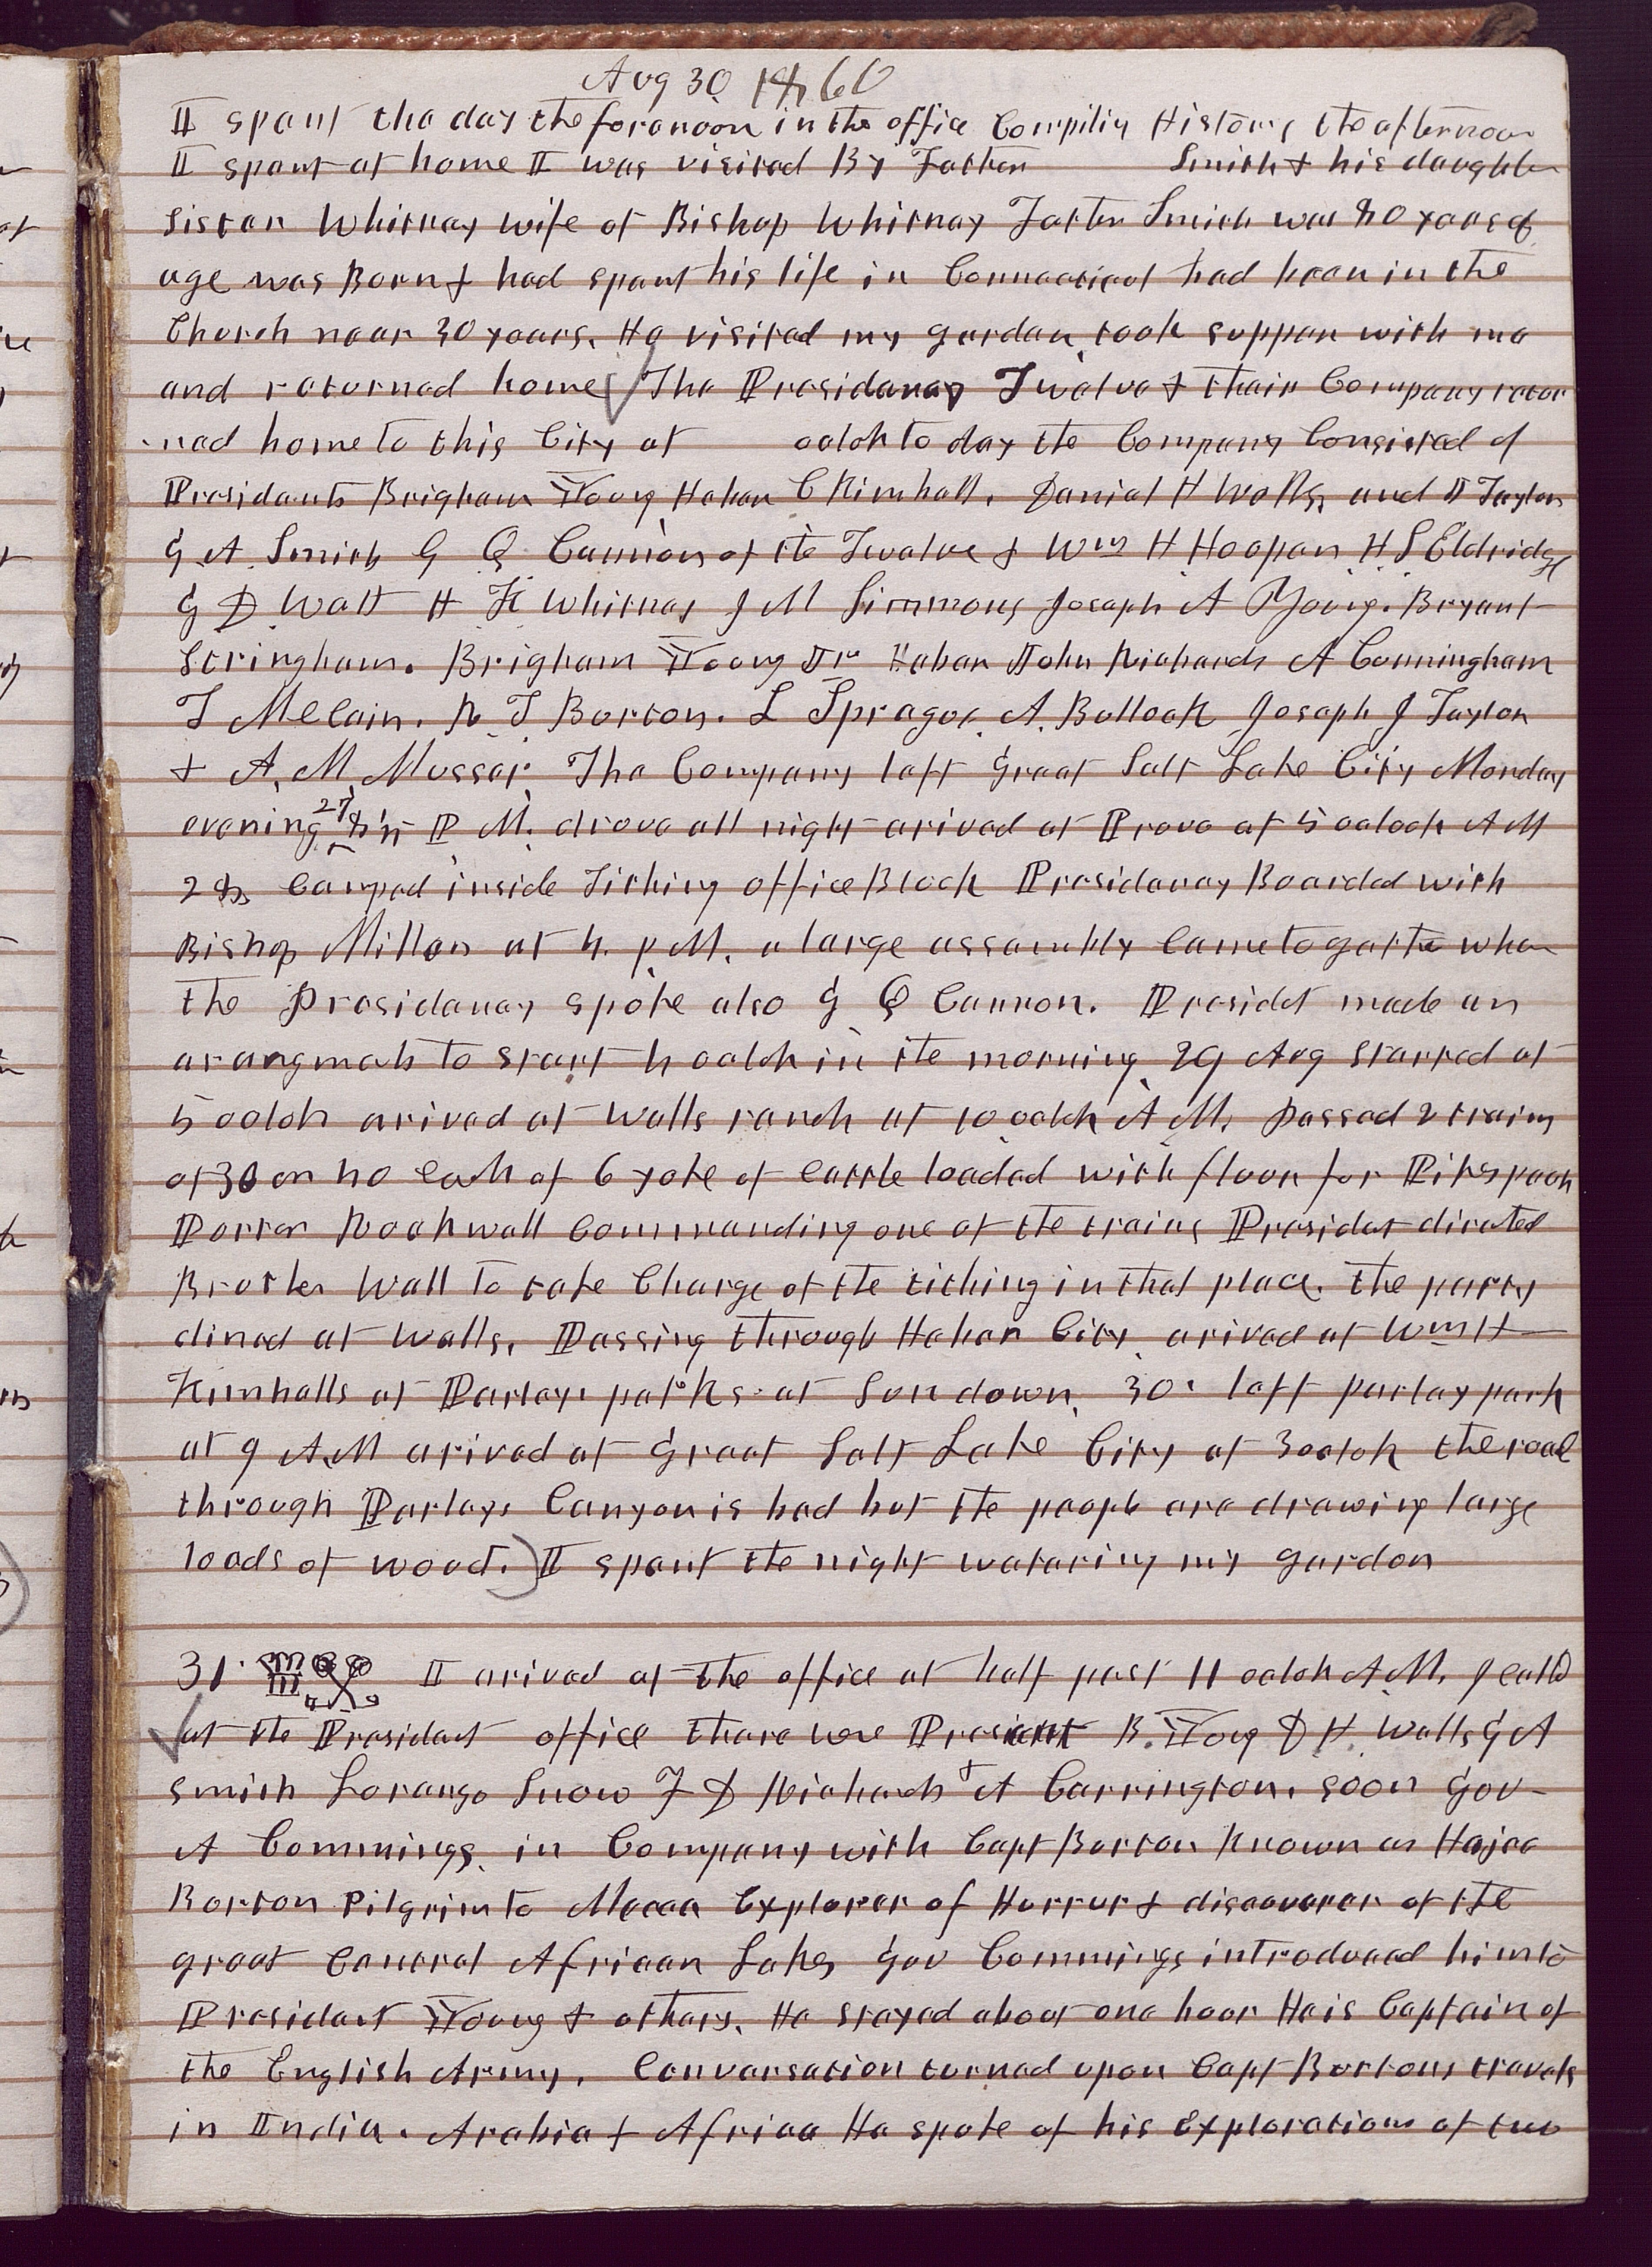 Aug 30 1860
I spent the day the forenoon in the office Compiling History the afternoon
I spent at home I was visited By Father Smith & his daughter
Sister Whitney wife of Bishop Whitney Father Smith was 80 years of
age was Born & had spent his life in Connecticut had been in the
Church near 30 years. He visited my garden took supper with me
and returned home The Presidency Twelve & their Company retur
-ned home to this City at oclok to day the Company Consisted of
Presidents Brigham Young Heber C Kimball. Daniel H Wells, and J Taylor
G A Smith G Q Cannon of the Twelve & Wm H Hooper H S Eldridge
G D Watt H K Whitney J M Simmons Joseph A Young. Bryant
Stringham. Brigham Young Jr Heber John Richards A Cunningham
T Mclain. R T Burton. L Sprague A. Bullock Joseph J Taylor
& A. M Musser. The Company left Great Salt Lake City Monday
evening 27 8.15 P M. drove all night arived at Provo at 5 oclock AM
28 Camped inside Tithing office Block Presidency Boarded with
Bishop Miller at 4. P.M. a large assembly Came together when
the Presidency spoke also G Q Cannon. Presidet made an
arangmets to start 4 oclok in the morning 29 Aug started at
5 oclok arived at Walls ranch at 10 oclok A M. passed 2 trains
of 30 or 40 each of 6 yoke of cattle loaded with flour for Pikes peak
Porter Rockwell Commanding one of the trains Presidet directed
Brother Wall to take Charge of the tithing in that place. The party
dined at Walls, Passing through Heber City arived at Wm H
Kimballs at Parleys parks at Sundown. 30. left parley park
at 9 A.M arived at Great Salt Lake City at 3 oclok the road
through Parleys Canyon is bad but the people are drawing large
loads of wood.) I spent the night watering my garden
31. I arived at the office at half past 11 oclok A.M. I Calld
at the President office there were Present B. Young D H. Wells G A
Smith Lorenzo Snow F D Richards & A Carrington. soon Gov
A Cummings in Company with Capt Burton Known as Hajee
Burton Pilgrim to Mecca Explorer of Harrur & discoverer of the
great Central African Lakes Gov Cummings introduced him to
President Young & others. He stayed about one hour He is Captain of
the English Army. Conversation turned upon Capt Burtons travels
in India. Arabia & Africa He spoke of his Explorations of two